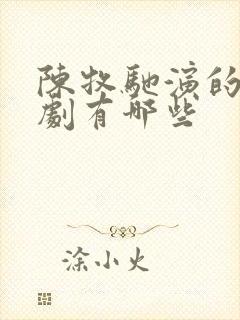 陳牧馳演的
劇有哪些
涂小火